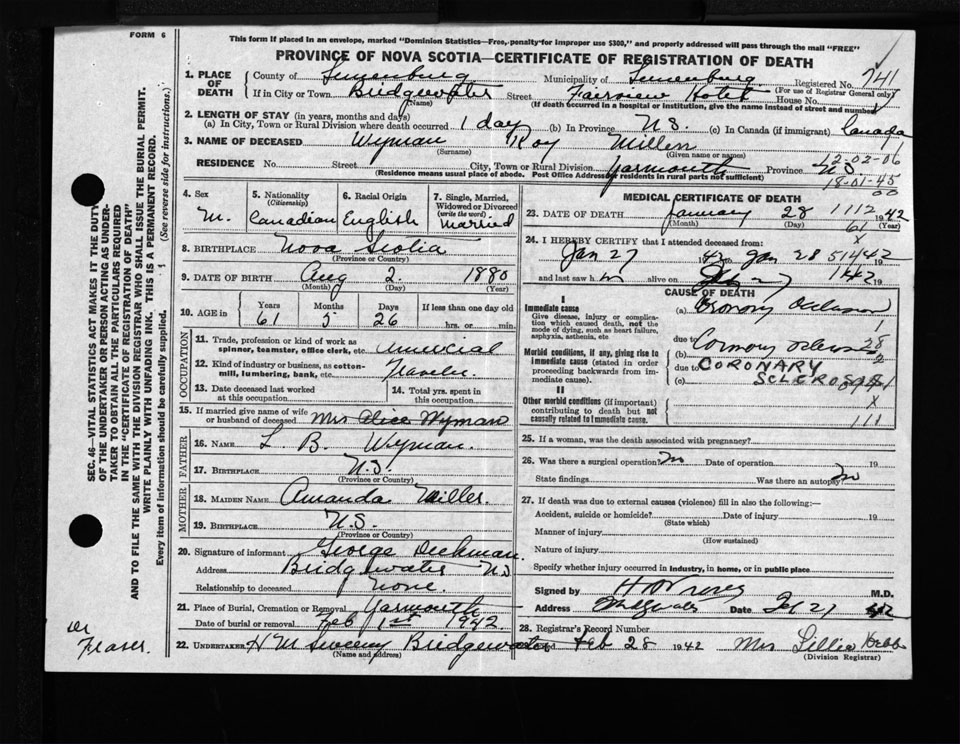 FORM 6
This form if placed in an envelope, marked "Dominion Statistics—Free, penalty for improper use $300," and properly addressed will pass through the mail "FREE"
PROVINCE OF NOVA SCOTIA—CERTIFICATE OF REGISTRATION OF DEATH
1. PLACE OF DEATH
County of Lunenburg Municipality of Lunenburg Registered No. 741
(For use of Registrar General only)
If in City or Town Bridgewater Street Fairview Hotel House No.
(Name) (If death occurred in a hospital or institution, give its name instead of street and number)
2. LENGTH OF STAY (in years, months and days)
(a) In City, Town or Rural Division where death occurred 1 day (b) In Province N.S. (c) In Canada (if immigrant) Canada
3. NAME OF DECEASED Wyman Roy Miller
(Surname) (Given name or names)
12-02-06
RESIDENCE No. Street City, Town or Rural Division Yarmouth Province N.S.
(Residence means usual place of abode. Post Office Address of residents in rural parts not sufficient)
18-01-45
00
4. Sex M.
5. Nationality (Citizenship) Canadian
6. Racial Origin English
7. Single, Married, Widowed or Divorced (write the word) Married
8. BIRTHPLACE Nova Scotia
(Province or Country)
9. DATE OF BIRTH Aug 2. 1880
(Month) (Day) (Year)
10. AGE in Years 61 Months 5 Days 26 If less than one day old hrs. or min.
OCCUPATION
11. Trade, profession or kind of work as spinner, teamster, office clerk, etc.
12. Kind of industry or business, as cotton-mill, lumbering, bank, etc.
13. Date deceased last worked at this occupation
14. Total yrs. spent in this occupation
15. If married give name of wife or husband of deceased Mrs Alice Wyman
FATHER
16. NAME L B. Wyman.
17. BIRTHPLACE N.S.
(Province or Country)
MOTHER
18. MAIDEN NAME Amanda Miller.
19. BIRTHPLACE N.S.
(Province or Country)
20. Signature of informant George
Address Bridgewater NS
Relationship to deceased None.
21. Place of Burial, Cremation or Removal Yarmouth
Date of burial or removal Feb 1st 1942.
22. UNDERTAKER H M Sweeny Bridgewater
(Name and address)
MEDICAL CERTIFICATE OF DEATH
23. DATE OF DEATH January 28 1112 1942
(Month) (Day) (Year)
61
X
24. I HEREBY CERTIFY that I attended deceased from:
Jan 27 1942 Jan 28 514442
and last saw h m alive on 19
CAUSE OF DEATH
I
Immediate cause
Give disease, injury or complication which caused death, not the mode of dying, such as heart failure, asphyxia, asthenia, etc
(a)
1
Morbid conditions, if any, giving rise to immediate cause (stated in order proceeding backwards from immediate cause).
(b) 28
due to CORONARY
(c) SCLEROSIS
II
Other morbid conditions (if important) contributing to death but not causally related to immediate cause.
X
111
25. If a woman, was the death associated with pregnancy?
26. Was there a surgical operation? no Date of operation 19
State findings Was there an autopsy? no
27. If death was due to external causes (violence) fill in also the following:—
Accident, suicide or homicide? Date of injury 19
(State which)
Manner of injury
(How sustained)
Nature of injury
Specify whether injury occurred in industry, in home, or in public place
Signed by M.D.
Address Date
28. Registrar's Record Number
Filed Feb 28 1942 Mrs Lillie Hebb
(Division Registrar)
SEC. 46—VITAL STATISTICS ACT MAKES IT THE DUTY
OF THE UNDERTAKER OR PERSON ACTING AS UNDER-
TAKER TO OBTAIN ALL THE PARTICULARS REQUIRED
IN THE "CERTIFICATE OF REGISTRATION OF DEATH"
AND TO FILE THE SAME WITH THE DIVISION REGISTRAR WHO SHALL ISSUE THE BURIAL PERMIT.
WRITE PLAINLY WITH UNFADING INK. THIS IS A PERMANENT RECORD.
Every item of information should be carefully supplied. (See reverse side for instructions.)
Dr
Fraser.